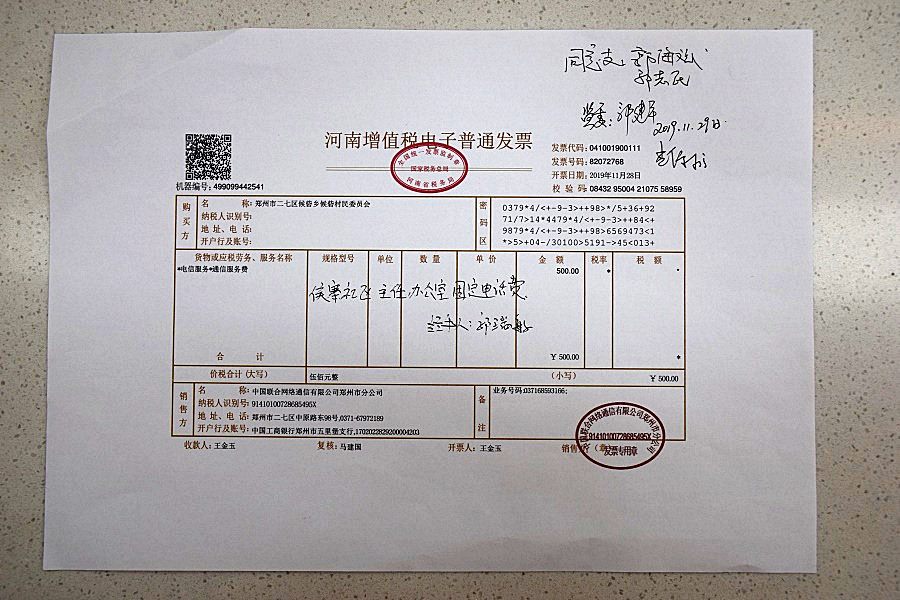 同意支:郭海斌
郭志民
监委:郭建军
2019.11.29日
河南增值税电子普通发票
全国统一发票监制章
国家税务总局
河南省税务局
发票代码:041001900111
发票号码:82072768
开票日期:2019年11月28日
校 验 码:08432 95004 21075 58959
机器编号:499099442541
购买方
名 称:郑州市二七区候砦乡候砦村民委员会
纳税人识别号:
地 址、电 话:
开户行及账号:
密码区
0379*4/<+-9-3>++98>*/5+36+92
71/7>14*4479*4/<+-9-3>++84<+
9879*4/<+-9-3>++98>6569473<1
*>5>+04-/30100>5191->45<013+
货物或应税劳务、服务名称 规格型号 单位 数 量 单 价 金 额 税率 税 额
*电信服务*通信服务费 500.00 * *
侯寨社区主任办公室固定电话费
经手人:郭瑞敏
合 计 ￥500.00 *
价税合计(大写) 伍佰元整 (小写) ￥500.00
销售方
名 称:中国联合网络通信有限公司郑州市分公司
纳税人识别号:91410100728685495X
地 址、电 话:郑州市二七区中原路东98号,0371-67972189
开户行及账号:中国工商银行郑州市五里堡支行,1702022829200004203
备注
业务号码:037168593166;
收款人:王金玉 复核:马建国 开票人:王金玉 销售方:(章)
中国联合网络通信有限公司郑州市分公司
91410100728685495X
发票专用章